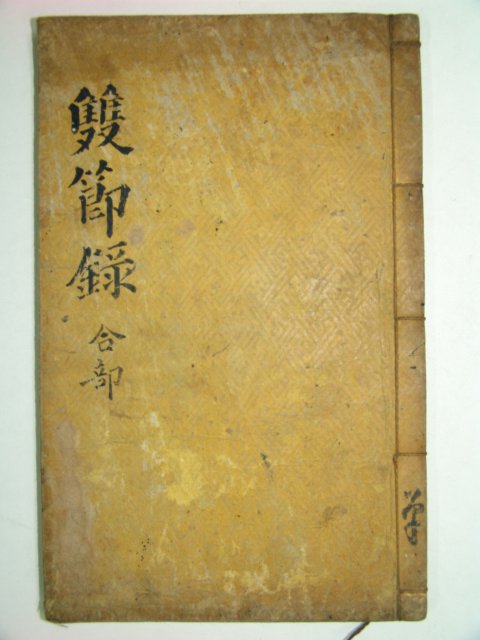 雙節錄
合部